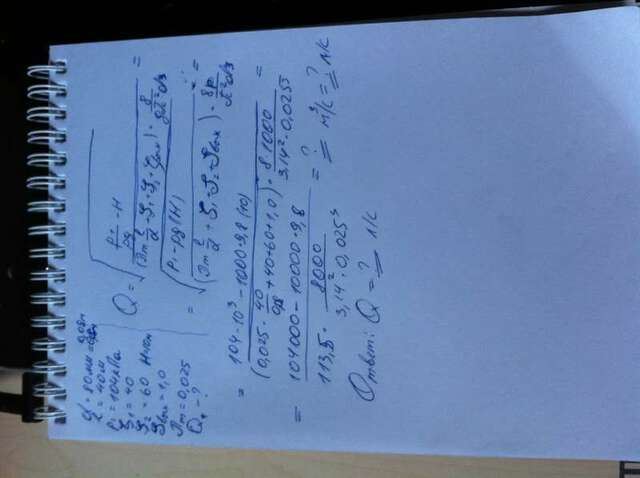 d = 80мм = 0,08м
l = 40м
p₁ = 104кПа
ζ₁ = 40
ζ₂ = 60 H=10м
ζвых = 1,0
λт = 0,025
Q - ?
Q = √ (p₁/ρg - H) / ((λт l/d + ζ₁ + ζ₂ + ζвых) · 8/gπ²d⁴) =
= √ (p₁ - ρg(H)) / ((λт l/d + ζ₁ + ζ₂ + ζвых) · 8ρ/π²d⁴) =
= (104·10³ - 1000·9,8(10)) / ((0,025 · 40/0,8 + 40+60+1,0) · 8·1000/3,14²·0,025³) =
= (104000 - 10000·9,8) / (113,5 · 8000/3,14²·0,025³) = ? м³/с = ? л/с
Ответ: Q = ? л/с